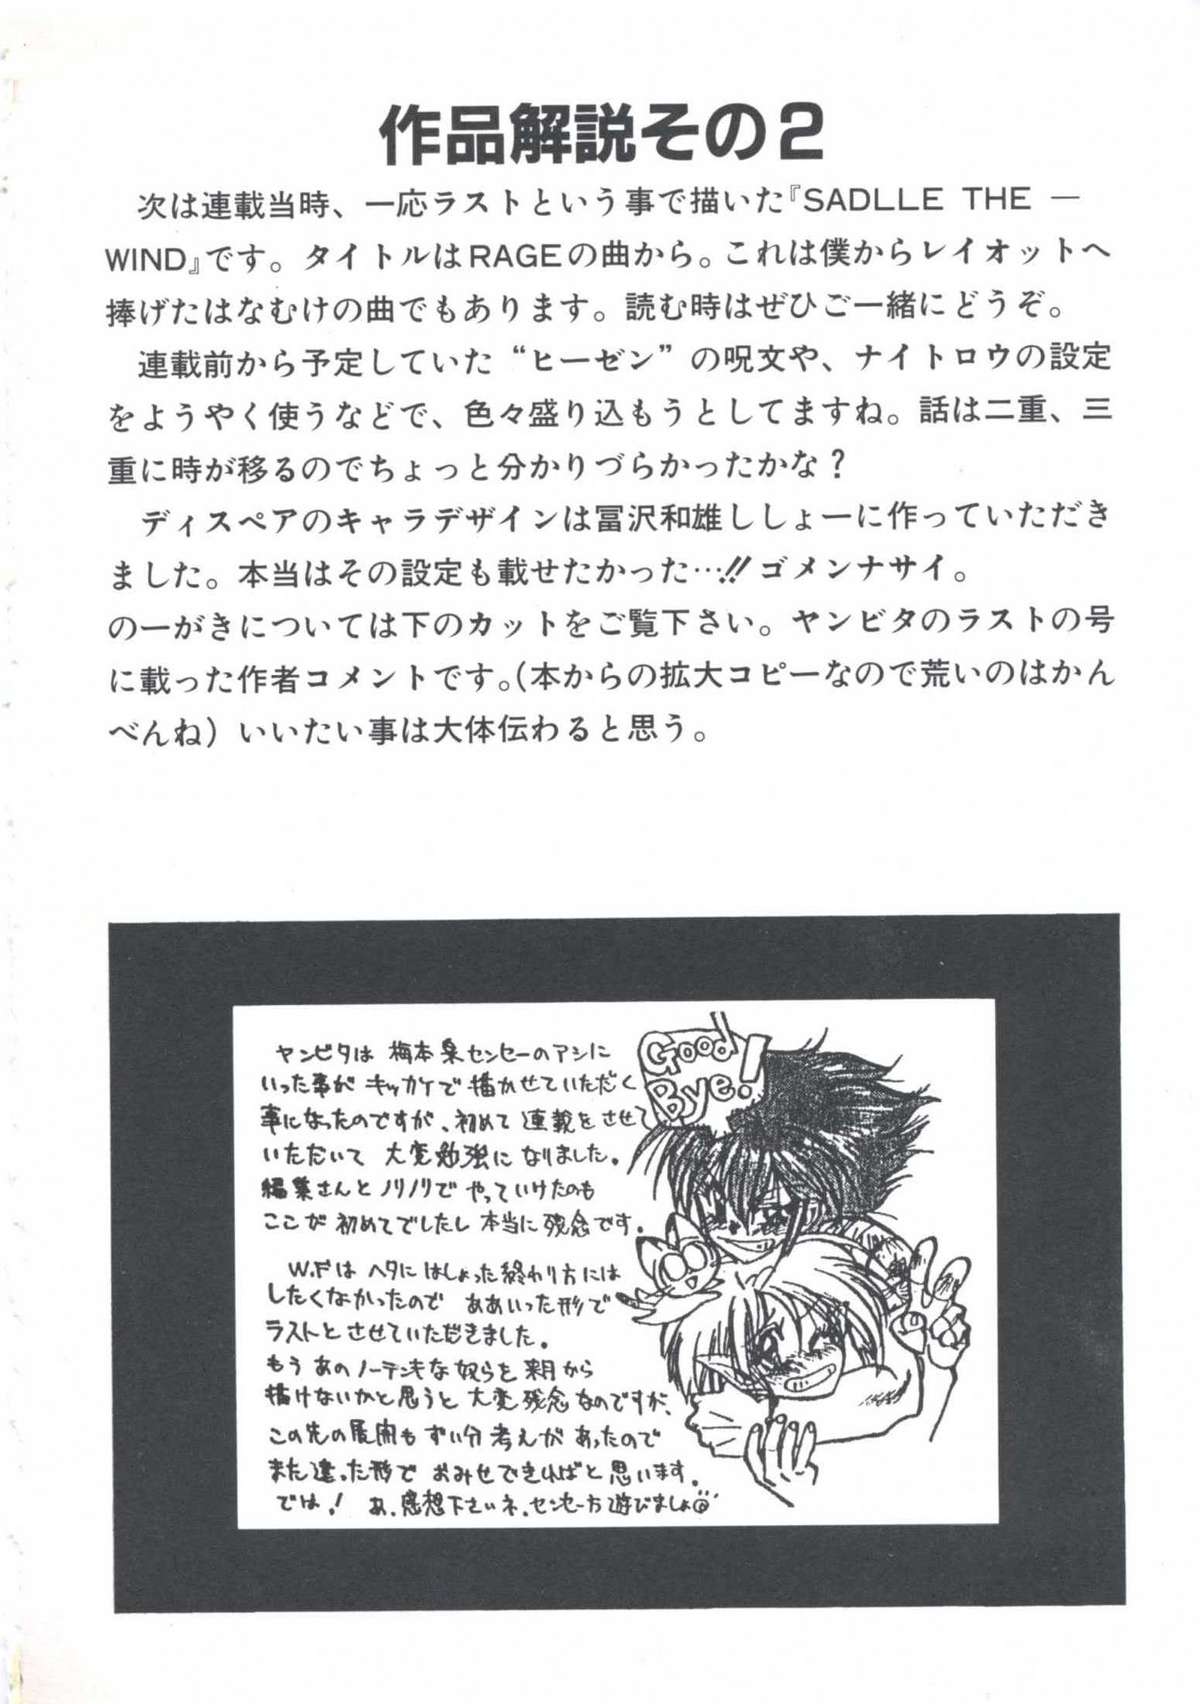 作品解説その2
次は連載当時、一応ラストという事で描いた『SADLLE THE —
WIND』です。タイトルはRAGEの曲から。これは僕からレイオットへ
捧げたはなむけの曲でもあります。読む時はぜひご一緒にどうぞ。
連載前から予定していた“ヒーゼン”の呪文や、ナイトロウの設定
をようやく使うなどで、色々盛り込もうとしてますね。話は二重、三
重に時が移るのでちょっと分かりづらかったかな？
ディスペアのキャラデザインは冨沢和雄ししょーに作っていただき
ました。本当はその設定も載せたかった…!!ゴメンナサイ。
の一がきについては下のカットをご覧下さい。ヤンビタのラストの号
に載った作者コメントです。(本からの拡大コピーなので荒いのはかん
べんね）いいたい事は大体伝わると思う。
Good
Bye!
ヤンビタは 梅本泉センセーのアシに
いった事が キッカケで 描かせていただく
事になったのですが、初めて 連載を させて
いただいて 大変勉強に なりました。
編集さんと ノリノリで やっていけたのも
ここが 初めてでしたし 本当に 残念です。
W.Fは ヘタに はしょった終わり方には
したくなかったので ああいった形で
ラストと させていただきました。
もう あの ノーテンキな 奴らを 来月から
描けないかと 思うと 大変 残念 なのですが、
この先の展開も ずい分 考えが あったので
また 違った形で おみせできればと 思います。
では！ あ、感想下さいネ、センセー方 遊びましょ